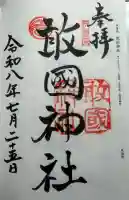 奉拝
敢國神社
敢國
令和八年七月二十五日